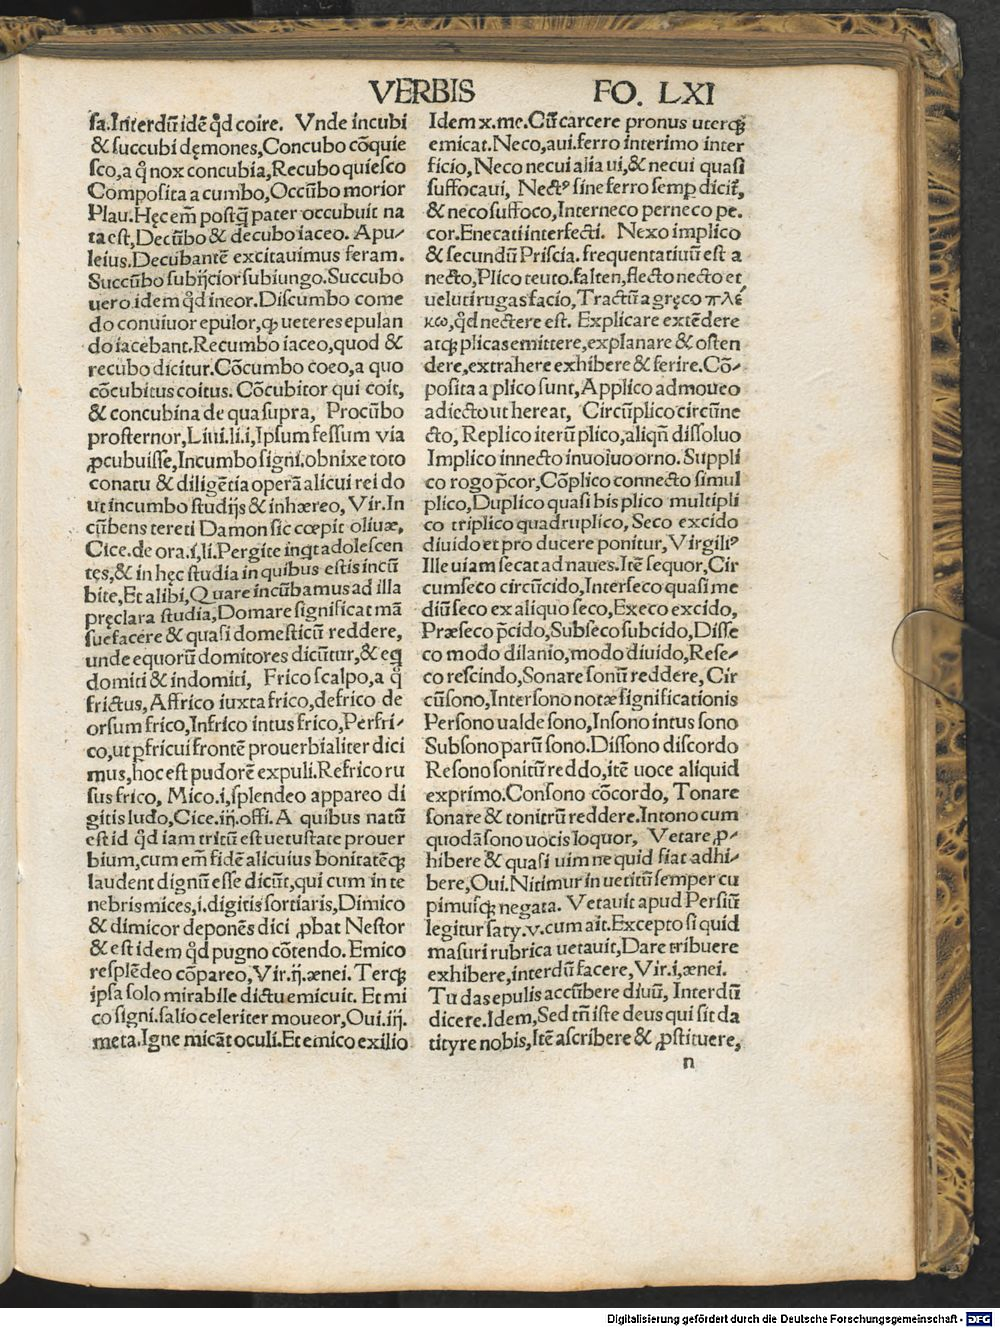 VERBIS FO. LXI
sa.Interdū idē qđ coire. Vnde incubi
& succubi dęmones,Concubo cōquie
sco,a q̊ nox concubia,Recubo quiesco
Composita a cumbo,Occūbo morior
Plau.Hęc em̄ postq̄ pater occubuit na
ta est,Decūbo & decubo iaceo. Apu-
leius.Decubantē excitauimus feram.
Succūbo subijcior subiungo.Succubo
uero idem qđ ineor.Discumbo come
do conuiuor epulor,ꝙ ueteres epulan
do iacebant.Recumbo iaceo,quod &
recubo dicitur.Cōcumbo coeo,a quo
cōcubitus coitus. Cōcubitor qui coit,
& concubina de qua supra, Procūbo
prosternor,Liui.li.i,Ipsum fessum via
ꝓcubuisse,Incumbo signi.obnixe toto
conatu & diligētia operā alicui rei do
ut incumbo studijs & inhæreo, Vir.In
cūbens tereti Damon sic cœpit oliuæ,
Cice.de ora.i,li.Pergite inq̄t adolescen
tęs,& in hęc studia in quibus estis incū
bite,Et alibi,Quare incūbamus ad illa
pręclara studia,Domare significat mā
suefacere & quasi domesticū reddere,
unde equorū domitores dicūtur,& eq̄
domiti & indomiti, Frico scalpo,a q̊
frictus, Affrico iuxta frico,defrico de
orsum frico,Infrico intus frico,Perfri-
co,ut ꝑfricui frontē prouerbialiter dici
mus,hoc est pudorē expuli.Refrico ru
sus frico, Mico.i,splendeo appareo di
gitis ludo,Cice.iij.offi.A quibus natū
est id qđ iam tritū est uetustate prouer
bium,cum em̄ fidē alicuius bonitatēq;
laudent dignū esse dicūt,qui cum in te
nebris mices,i.digitis sortiaris,Dimico
& dimicor deponēs dici ꝓbat Nestor
& est idem qđ pugno cōtendo. Emico
resplēdeo cōpareo,Vir.ij.ænei. Terq;
ipsa solo mirabile dictu emicuit. Et mi
co signi.salio celeriter moueor,Oui.iij.
meta.Igne micāt oculi.Et emico exilio
Idem x.me.Cū carcere pronus uterq;
emicat.Neco,aui.ferro interimo inter
ficio,Neco necui alia ui,& necui quasi
suffocaui, Nectꝰ sine ferro semꝑ dicit̄,
& neco suffoco,Interneco perneco pe.
cor.Enecati interfecti. Nexo implico
& secundū Priscia. frequentatiuū est a
necto,Plico teuto.falten,flecto necto et
ueluti rugas facio,Tractū a gręco πλέ
κω,qđ nectere est. Explicare extēdere
atq; plicas emittere,explanare & osten
dere,extrahere exhibere & ferire.Cō-
posita a plico sunt,Applico admoueo
adiecto ut hereat, Circūplico circūne
cto, Replico iterū plico,aliqn̄ dissoluo
Implico innecto inuoluo orno. Suppli
co rogo p̄cor,Cōplico connecto simul
plico,Duplico quasi bis plico multipli
co triplico quadruplico, Seco excido
diuido et pro ducere ponitur,Virgiliꝰ
Ille uiam secat ad naues.Itē sequor,Cir
cumseco circūcido,Interseco quasi me
diū seco ex aliquo seco,Execo excido,
Præseco p̄cido,Subseco subcido,Disse
co modo dilanio,modo diuido,Rese-
co rescindo,Sonare sonū reddere,Cir
cūsono,Intersono notæ significationis
Persono ualde sono,Insono intus sono
Subsono parū sono.Dissono discordo
Resono sonitū reddo,itē uoce aliquid
exprimo.Consono cōcordo, Tonare
sonare & tonitrū reddere.Intono cum
quodā sono uocis loquor, Vetare ꝓ-
hibere & quasi uim ne quid fiat adhi-
bere,Oui.Nitimur in uetitū semper cu
pimusq; negata. Vetauit apud Persiū
legitur saty.v.cum ait.Excepto si quid
masuri rubrica uetauit,Dare tribuere
exhibere,interdū facere,Vir.i,ænei.
Tu das epulis accūbere diuū, Interdū
dicere.Idem,Sed tn̄ iste deus qui sit da
tityre nobis,Itē ascribere & ꝓstituere,
n
Digitalisierung gefördert durch die Deutsche Forschungsgemeinschaft - DFG